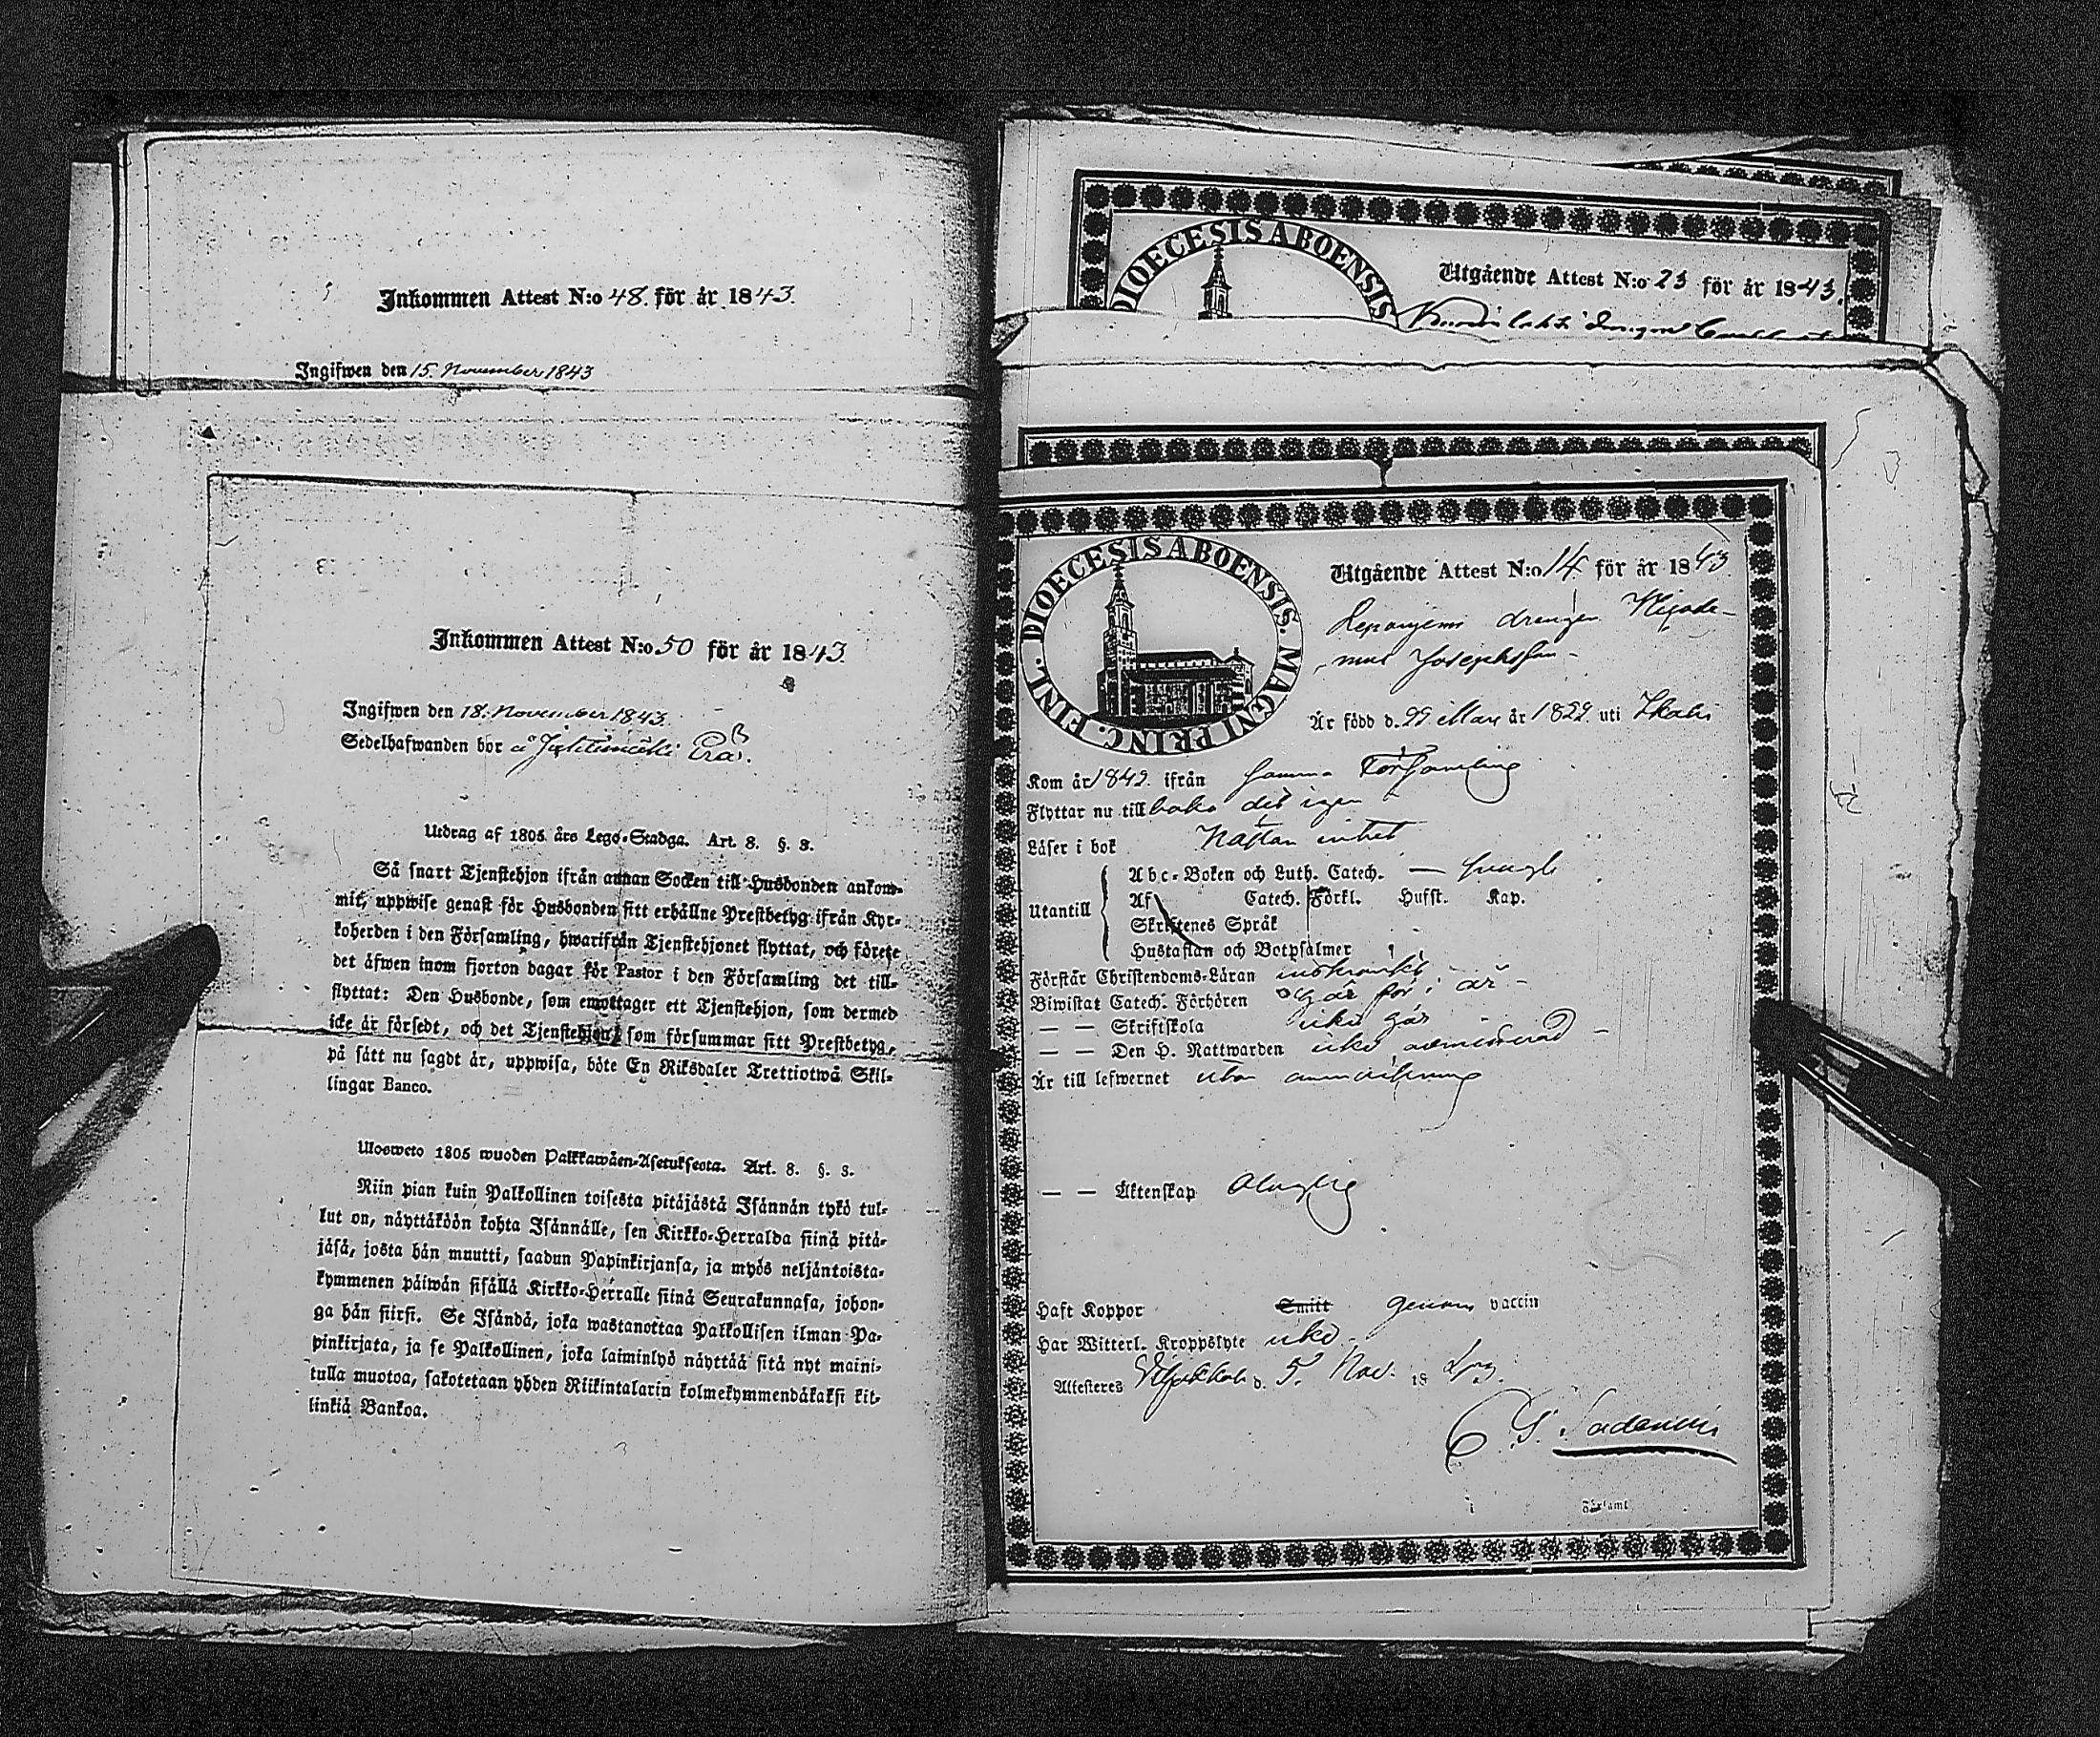 Inkommen Attest N:o 48. för år 1843.
Ingifwen den 15. November 1843
Inkommen Attest N:o 50 för år 1843.
Ingifwen den 18. November 1843.
Sedelhafwanden bor å
Utdrag af 1805 års Lego-Stadga. Art. 8. §. 3.
Så snart Tjenstehjon ifrån annan Socken till Husbonden ankom-
mit, uppwise genast för Husbonden sitt erhållne Prestbetyg ifrån Kyr-
koherden i den Församling, hwarifrån Tjenstehjonet flyttat, och förete
det äfwen inom fjorton dagar för Pastor i den Församling det till-
flyttat: Den Husbonde, som emottager ett Tjenstehjon, som dermed
icke är försedt, och det Tjenstehjon, som försummar sitt Prestbetyg,
på sätt nu sagdt är, uppwisa, böte En Riksdaler Trettiotwå Skil-
lingar Banco.
Ulosweto 1805 wuoden Palkkawäen-Asetuksesta. Art. 8. §. 3.
Niin pian kuin Palkollinen toisesta pitäjästä Isännän tykö tul-
lut on, näyttäköön kohta Isännälle, sen Kirkko-Herralda siinä pitä-
jäsä, josta hän muutti, saadun Papinkirjansa, ja myös neljäntoista-
kymmenen päiwän sisällä Kirkko-Herralle siinä Seurakunnasa, johon-
ga hän siirsi. Se Isändä, joka wastanottaa Palkollisen ilman Pa-
pinkirjata, ja se Palkollinen, joka laiminlyö näyttää sitä nyt maini-
tulla muotoa, sakotetaan yhden Riikintalarin kolmekymmendäkaksi kil-
linkiä Bankoa.
DIOECESIS ABOENSIS
Utgående Attest N:o 23 för år 1843.
DIOECESIS ABOENSIS. MAGNI PRINC. FINL.
Utgående Attest N:o 14. för år 1843.
drengen
Josephsson
Är född d. 29 Mars år 1822 uti Ikalis
Kom år 1842. ifrån samma Församling
Flyttar nu till baka dit igen
Läser i bok Nästan intet
Utantill
Abc-Boken och Luth. Catech. —
Af Catech. Förkl. Husst. Kap.
Skriftenes Språk
Hustaflan och Botpsalmer
Förstår Christendoms-Läran inskränkt
Biwistat Catech. Förhören
— — Skriftskola
— — Den H. Nattwarden icke admitterad
Är till lefwernet utan anmärkning
— — Äktenskap
Haft Koppor Smitt genom vaccin
Har Witterl. Kroppslyte icke
Attesteres d. 5. Nov. 18